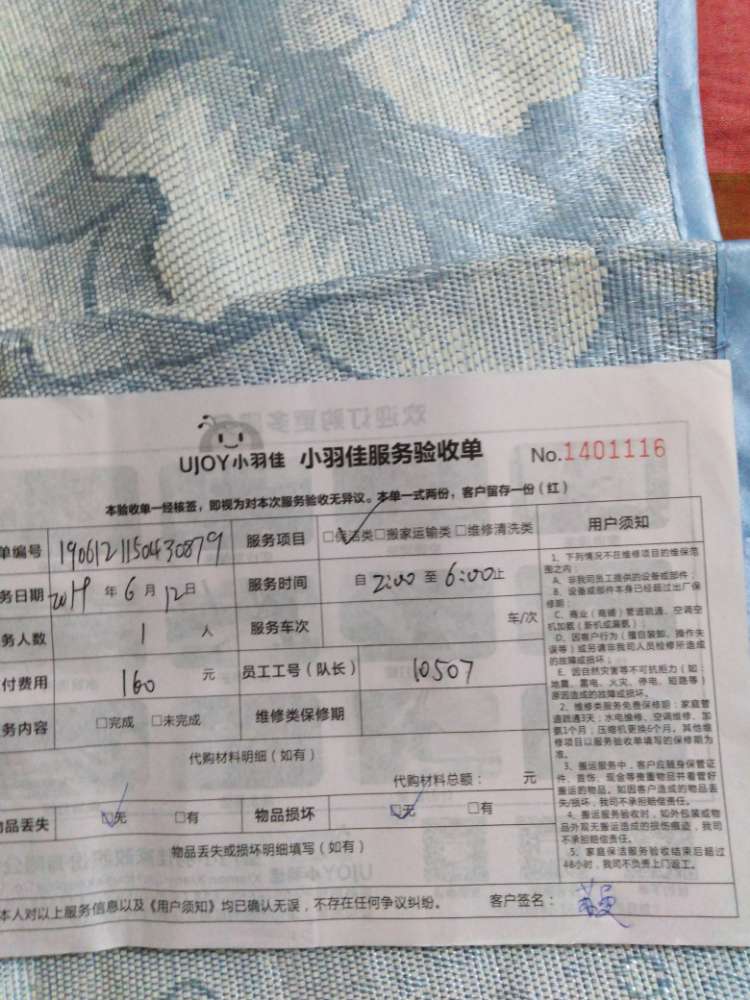 UJOY小羽佳 小羽佳服务验收单 No.1401116
本验收单一经核签，即视为对本次服务验收无异议。本单一式两份，客户留存一份（红）
单编号 1906121150430879 服务项目 □保洁类□搬家运输类□维修清洗类
务日期 2019年6月12日 服务时间 自2:00至6:00止
务人数 1 人 服务车次 车/次
付费用 160 元 员工工号（队长） 10507
务内容 □完成 □未完成 维修类保修期
代购材料明细（如有）
代购材料总额： 元
品丢失 □无 □有 物品损坏 □无 □有
物品丢失或损坏明细填写（如有）
本人对以上服务信息以及《用户须知》均已确认无误，不存在任何争议纠纷。 客户签名：
用户须知
1、下列情况不在维修项目的维保范
围之内：
A、非我司员工提供的设备或部件；
B、设备或部件本身已经超过出厂保
修期；
C、商业（商铺）管道疏通、空调空
机加氨（新机或漏氨）；
D、因客户行为（擅自装卸、操作失
误等）或另请非我司人员检修所造成
的故障或损坏；
E、因自然灾害等不可抗拒力（如：
地震、雷电、火灾、停电、短路等）
原因造成的故障或损坏。
2、维修类服务免费保修期：家庭管
道疏通3天；水电维修、空调维修、加
氨1个月；压缩机更换6个月。其他维
修项目以服务验收单填写的保修期为
准。
3、搬运服务中，客户应随身保管证
件、首饰、现金等贵重物品并看管好
搬运的物品。如因客户造成的物品丢
失/损坏，我司不承担赔偿责任。
4、搬运服务验收时，如外包装或物
品外观无搬运造成的损伤痕迹，我司
不承担赔偿责任。
5、家庭保洁服务验收结束后超过
48小时，我司不负责上门返工。